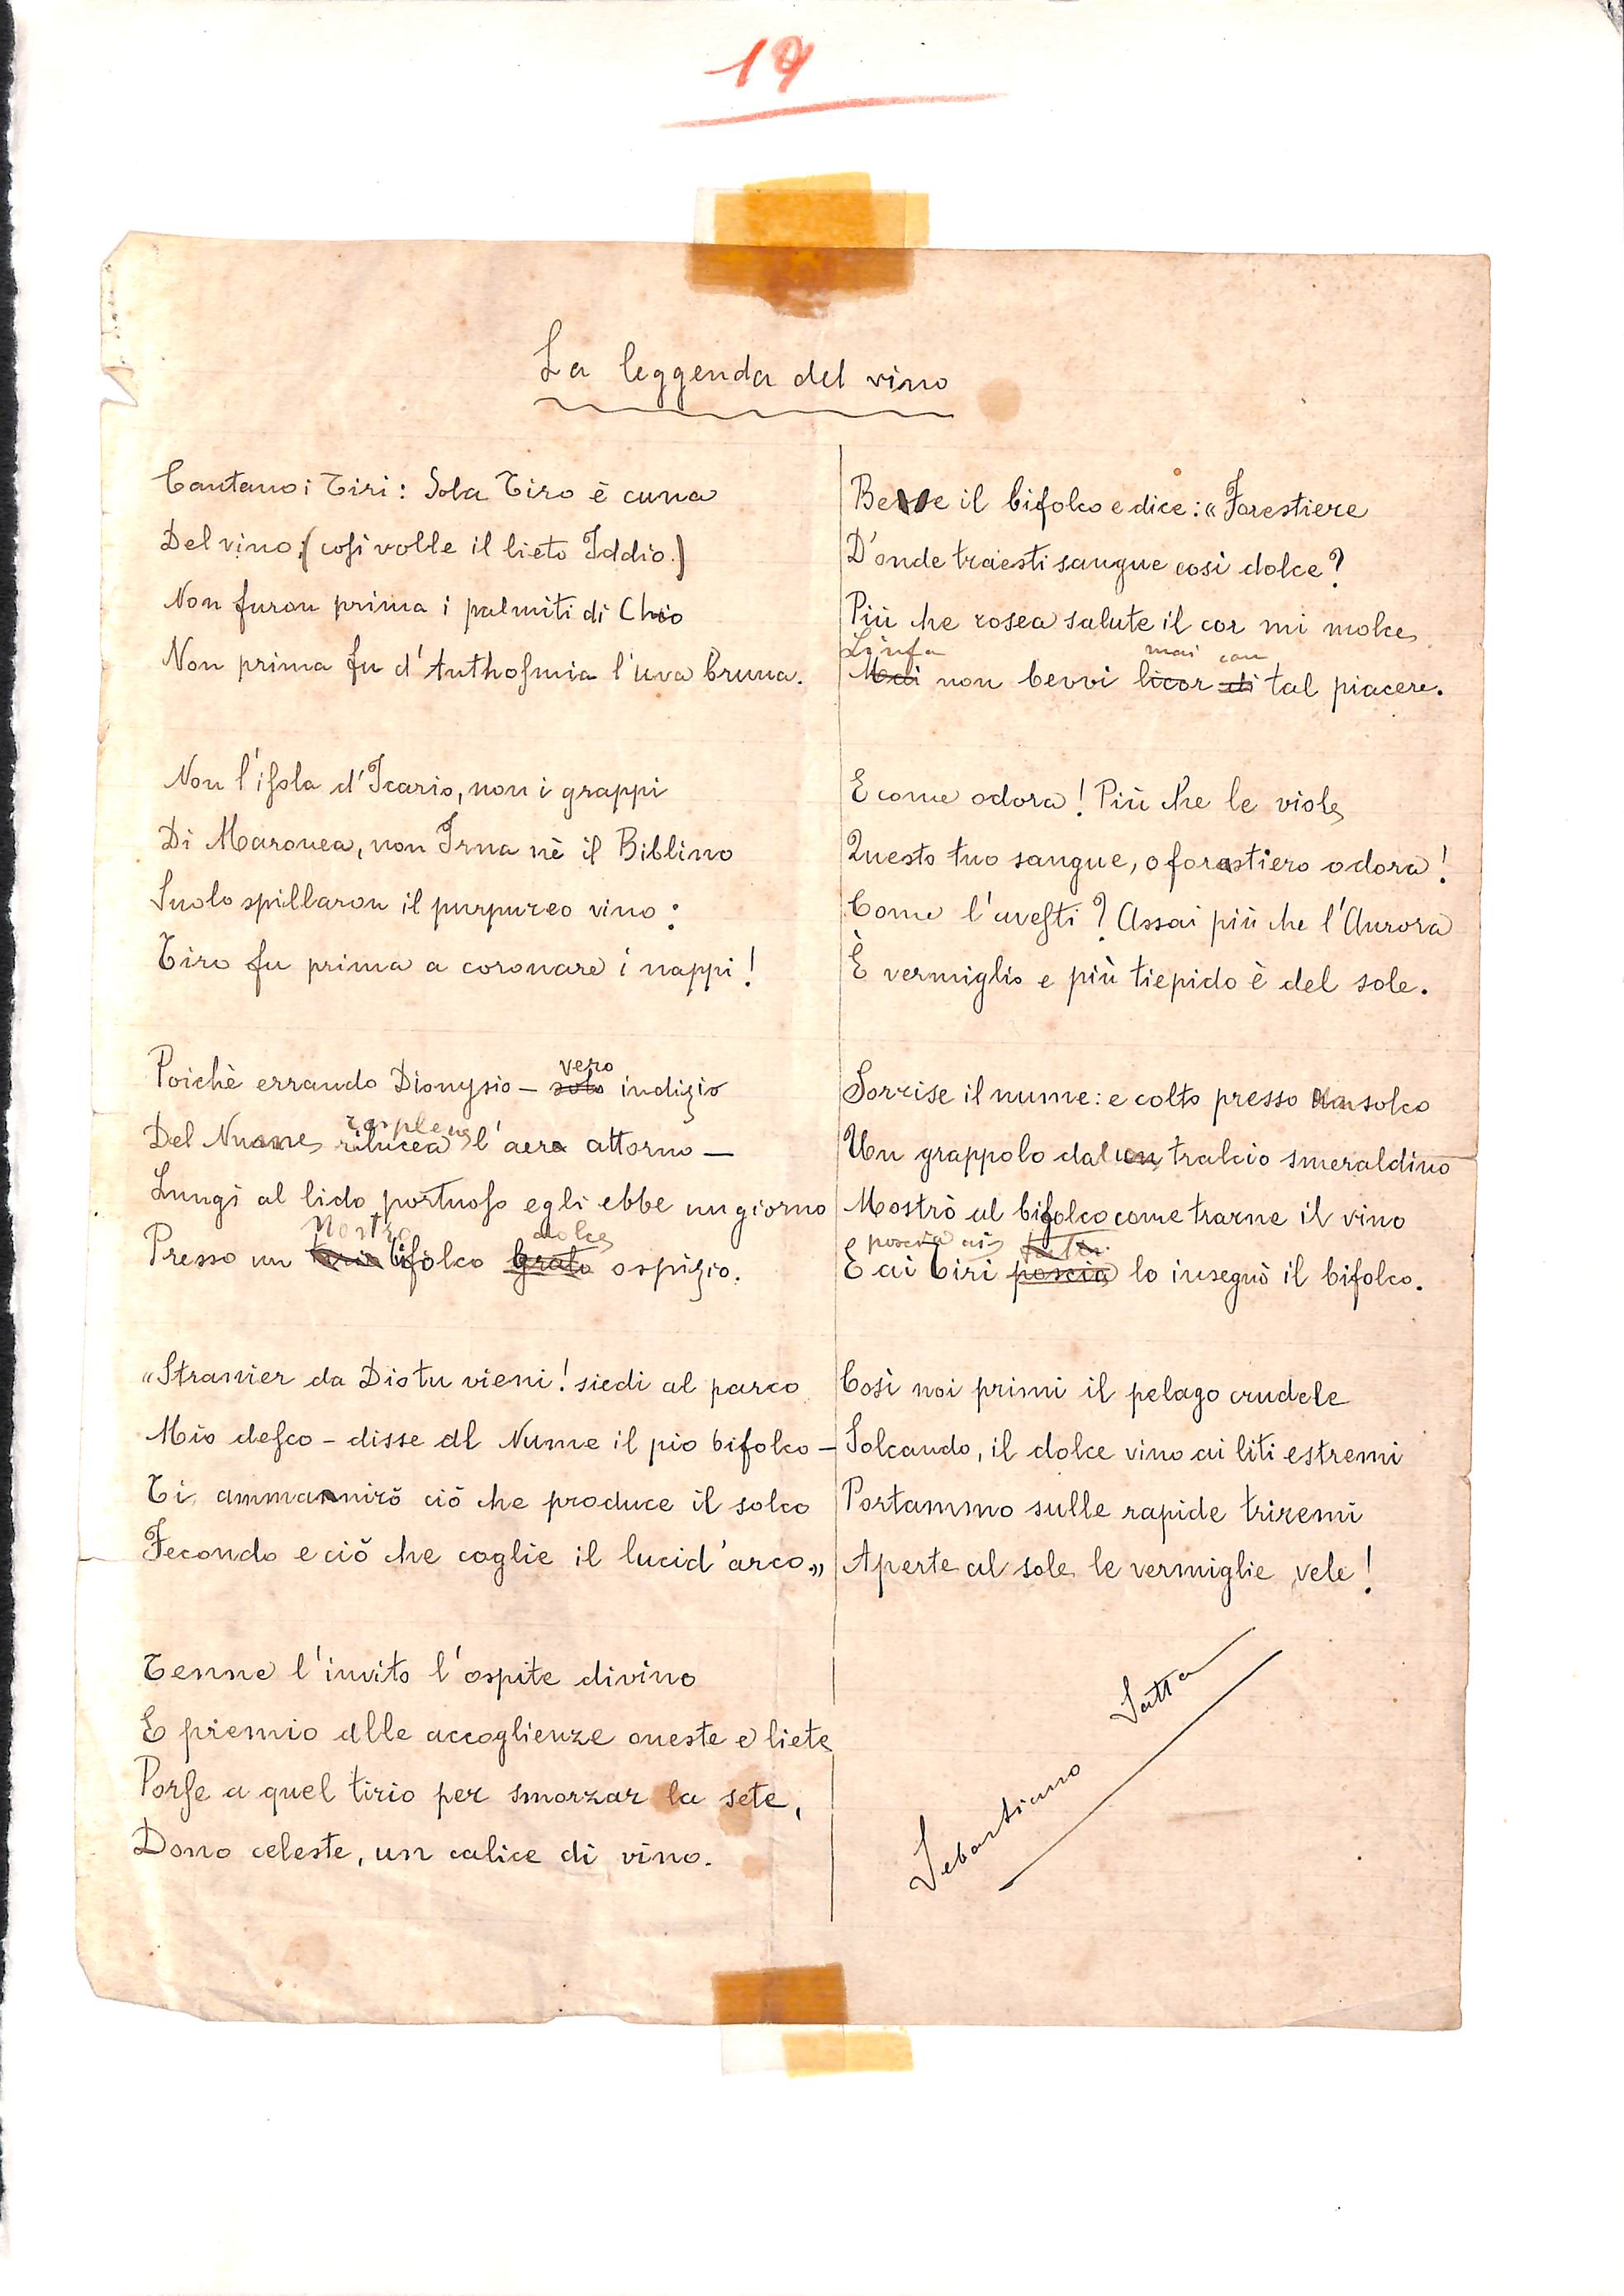 19
La leggenda del vino
Cantano i Tiri: Sola Tiro è cuna
Del vino; (così volle il lieto Iddio.)
Non furon prima i palmiti di Chio
Non prima fu d'Anthosmia l'uva bruna.
Non l'isola d'Icario, non i grappi
Di Maronea, non Irna nè il Biblino
Suolo spillaron il purpureo vino:
Tiro fu prima a coronare i nappi!
vero
Poichè errando Dionysio — solo indizio
resplende
Del Nume, rilucea l'aere attorno —
Lungi al lido portuoso egli ebbe un giorno
Nostro dolce
Presso un tirio bifolco grato ospizio.
«Stranier da Dio tu vieni! siedi al parco
Mio desco — disse al Nume il pio bifolco —
Ti ammannirò ciò che produce il solco
Fecondo e ciò che coglie il lucid'arco.»
Tenne l'invito l'ospite divino
E premio alle accoglienze oneste e liete
Porse a quel tirio per smorzar la sete,
Dono celeste, un calice di vino.
Bevve il bifolco e dice: «Forestiere
D'onde traesti sangue così dolce?
Più che rosea salute il cor mi molce
Linfa mai con
Mai non bevvi licor di tal piacere.
E come odora! Più che le viole
Questo tuo sangue, o forastiero odora!
Come l'avesti? Assai più che l'Aurora
È vermiglio e più tiepido è del sole.
Sorrise il nume: e colto presso un solco
Un grappolo dal un tralcio smeraldino
Mostrò al bifolco come trarne il vino
E poscia ai tutti
E ai Tiri poscia lo insegnò il bifolco.
Così noi primi il pelago crudele
Solcando, il dolce vino ai liti estremi
Portammo sulle rapide triremi
Aperte al sole le vermiglie vele!
Sebastiano Satta